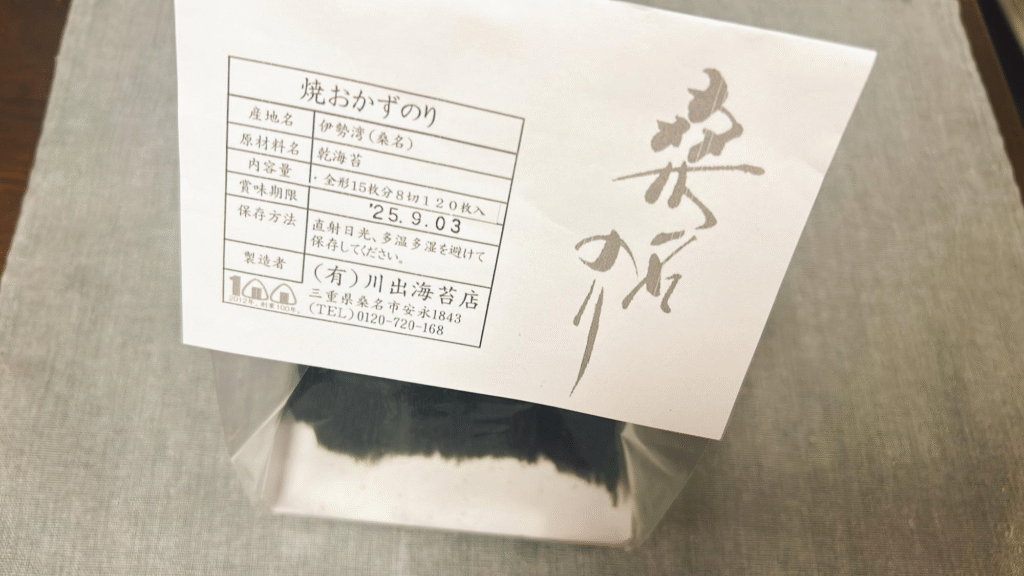 焼おかずのり
産地名 伊勢湾(桑名)
原材料名 乾海苔
内容量 ・全形15枚分8切120枚入
賞味期限 '25.9.03
保存方法 直射日光、多温多湿を避けて
保存してください。
製造者 (有)川出海苔店
三重県桑名市安永1843
(TEL)0120-720-168
100
2012年、創業100年。
桑名
のり